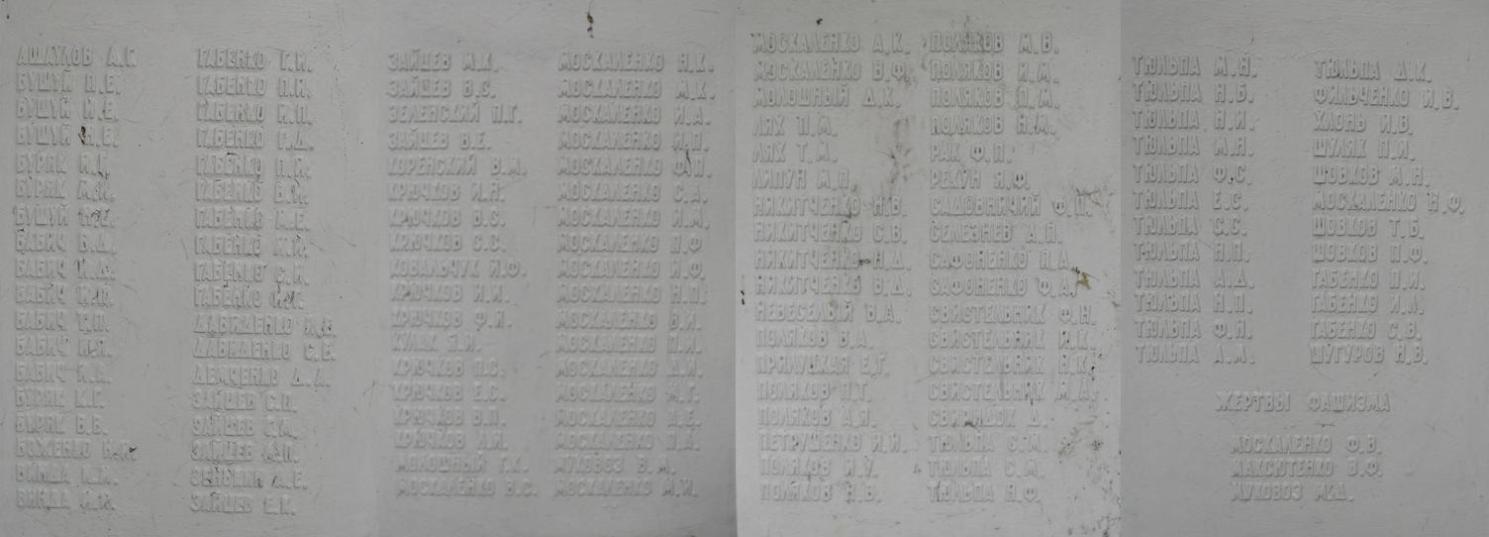 АШАУЛОВ А.Г.
БУШУЙ П.Е.
БУШУЙ И.Е.
БУШУЙ
БУРЯК
БУРЯК
БУШУЙ
БАБИЧ
БАБИЧ
БАБИЧ
БАБИЧ
БАБИЧ
БАБИЧ
БУРЯК
БУРЯК В.В.
БОЖЕНКО
ГАБЕНКО Г.И.
ГАБЕНКО П.И.
ГАБЕНКО И.П.
ГАБЕНКО Г.Д.
ГАБЕНКО
ГАБЕНКО
ГАБЕНКО
ГАБЕНКО
ГАБЕНКО С.И.
ГАБЕНКО
ДАВИДЕНКО
ДАВИДЕНКО С.Е.
ДЕМЧЕНКО
ЗАЙЦЕВ
ЗАЙЦЕВ
ЗАЙЦЕВ
ЗАЙЦЕВ
ЗАЙЦЕВ М.К.
ЗАЙЦЕВ В.С.
ЗЕЛЕНСКИЙ П.Г.
ЗАЙЦЕВ В.Е.
КОРЕНСКИЙ В.М.
КРЮЧКОВ И.Н.
КРЮЧКОВ В.С.
КРЮЧКОВ С.С.
КОВАЛЬЧУК И.Ф.
КРЮЧКОВ И.И.
КРЮЧКОВ Ф.Я.
КУЛАК
КРЮЧКОВ П.С.
КРЮЧКОВ Е.С.
КРЮЧКОВ В.П.
КРЮЧКОВ
МОЛОШНЫЙ Г.К.
МОСКАЛЕНКО В.С.
МОСКАЛЕНКО Н.К.
МОСКАЛЕНКО М.К.
МОСКАЛЕНКО И.А.
МОСКАЛЕНКО И.П.
МОСКАЛЕНКО Ф.П.
МОСКАЛЕНКО С.А.
МОСКАЛЕНКО И.М.
МОСКАЛЕНКО П.Ф
МОСКАЛЕНКО И.Ф.
МОСКАЛЕНКО Н.П.
МОСКАЛЕНКО В.И.
МОСКАЛЕНКО П.И.
МОСКАЛЕНКО Д.И.
МОСКАЛЕНКО М.Г.
МОСКАЛЕНКО А.Е.
МОСКАЛЕНКО П.А.
МУКОВОЗ В.М.
МОСКАЛЕНКО М.И.
МОСКАЛЕНКО А.К.
МОСКАЛЕНКО В.Ф.
МОЛОШНЫЙ Д.К.
ЛЯХ П.М.
ЛЯХ Т.М.
ЛИПУН М.П.
НИКИТЧЕНКО Н.В.
НИКИТЧЕНКО С.В.
НИКИТЧЕНКО Н.Д.
НИКИТЧЕНКО В.Д.
НЕВЕСЕЛЫЙ В.А.
ПОЛЯКОВ В.А.
ПРИЛУЦКАЯ Е.Г.
ПОЛЯКОВ П.Т.
ПОЛЯКОВ А.Я.
ПЕТРУШЕНКО И.И.
ПОЛЯКОВ И.У.
ПОЛЯКОВ Н.В.
ПОЛЯКОВ М.В.
ПОЛЯКОВ И.М.
ПОЛЯКОВ П.М.
ПОЛЯКОВ Н.М.
РАК Ф.П.
РЕКУН Я.Ф.
САДОВНИЧИЙ Ф.П.
СЕЛЕЗНЕВ А.П.
САФОНЕНКО П.А.
САФОНЕНКО Ф.А.
СВИСТЕЛЬНИК Ф.Н.
СВИСТЕЛЬНИК И.К.
СВИСТЕЛЬНИК Н.К.
СВИСТЕЛЬНИК М.А.
СВИРИДОК Д.
ТЮЛЬПА С.М.
ТЮЛЬПА С.М.
ТЮЛЬПА Н.Ф.
ТЮЛЬПА М.Н.
ТЮЛЬПА Н.Б.
ТЮЛЬПА Н.И.
ТЮЛЬПА М.Н.
ТЮЛЬПА Ф.С.
ТЮЛЬПА Е.С.
ТЮЛЬПА С.С.
ТЮЛЬПА Н.П.
ТЮЛЬПА А.Д.
ТЮЛЬПА Н.П.
ТЮЛЬПА Ф.Я.
ТЮЛЬПА А.М.
ТЮЛЬПА Д.К.
ФИЛЬЧЕНКО И.В.
ХЛОНЬ И.В.
ШУЛЯК П.И.
ШОВКОВ М.Н.
МОСКАЛЕНКО Н.Ф.
ШОВКОВ Т.Б.
ШОВКОВ П.Ф.
ГАБЕНКО П.И.
ГАБЕНКО И.Л.
ГАБЕНКО С.В.
ШУГУРОВ Н.В.
ЖЕРТВЫ ФАШИЗМА
МОСКАЛЕНКО Ф.В.
МАКСЮТЕНКО В.Ф.
МУКОВОЗ М.Д.